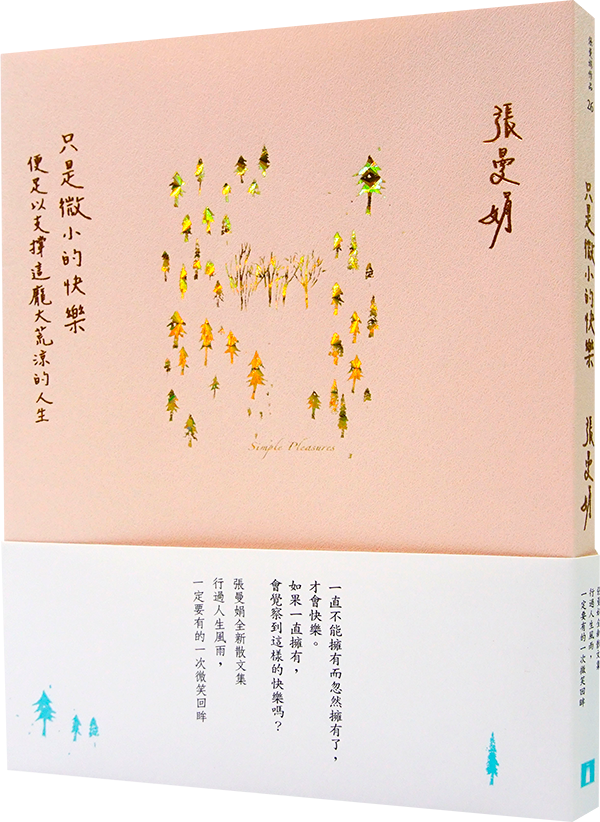 張曼娟
只是微小的快樂
便足以支撐這龐大荒涼的人生
Simple Pleasures
一直不能擁有而忽然擁有了，
才會快樂。
如果一直擁有，
會覺察到這樣的快樂嗎？
張曼娟全新散文集
行過人生風雨，
一定要有的一次微笑回眸
張曼娟作品 26
只是微小的快樂
張曼娟
張曼娟全新散文集
行過人生風雨，
一定要有的一次微笑回眸